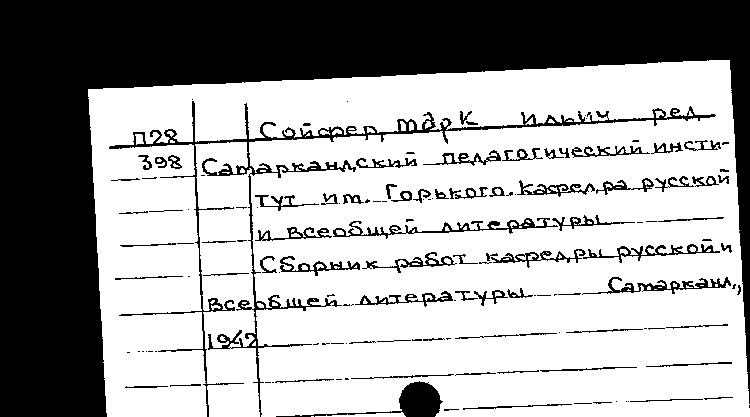 П28 Сойфер, Марк Ильич ред
398 Самаркандский педагогический инсти-
тут им. Горького. Кафедра русской
и всеобщей литературы
Сборник работ кафедры русской и
всеобщей литературы Самарканд,
1942.